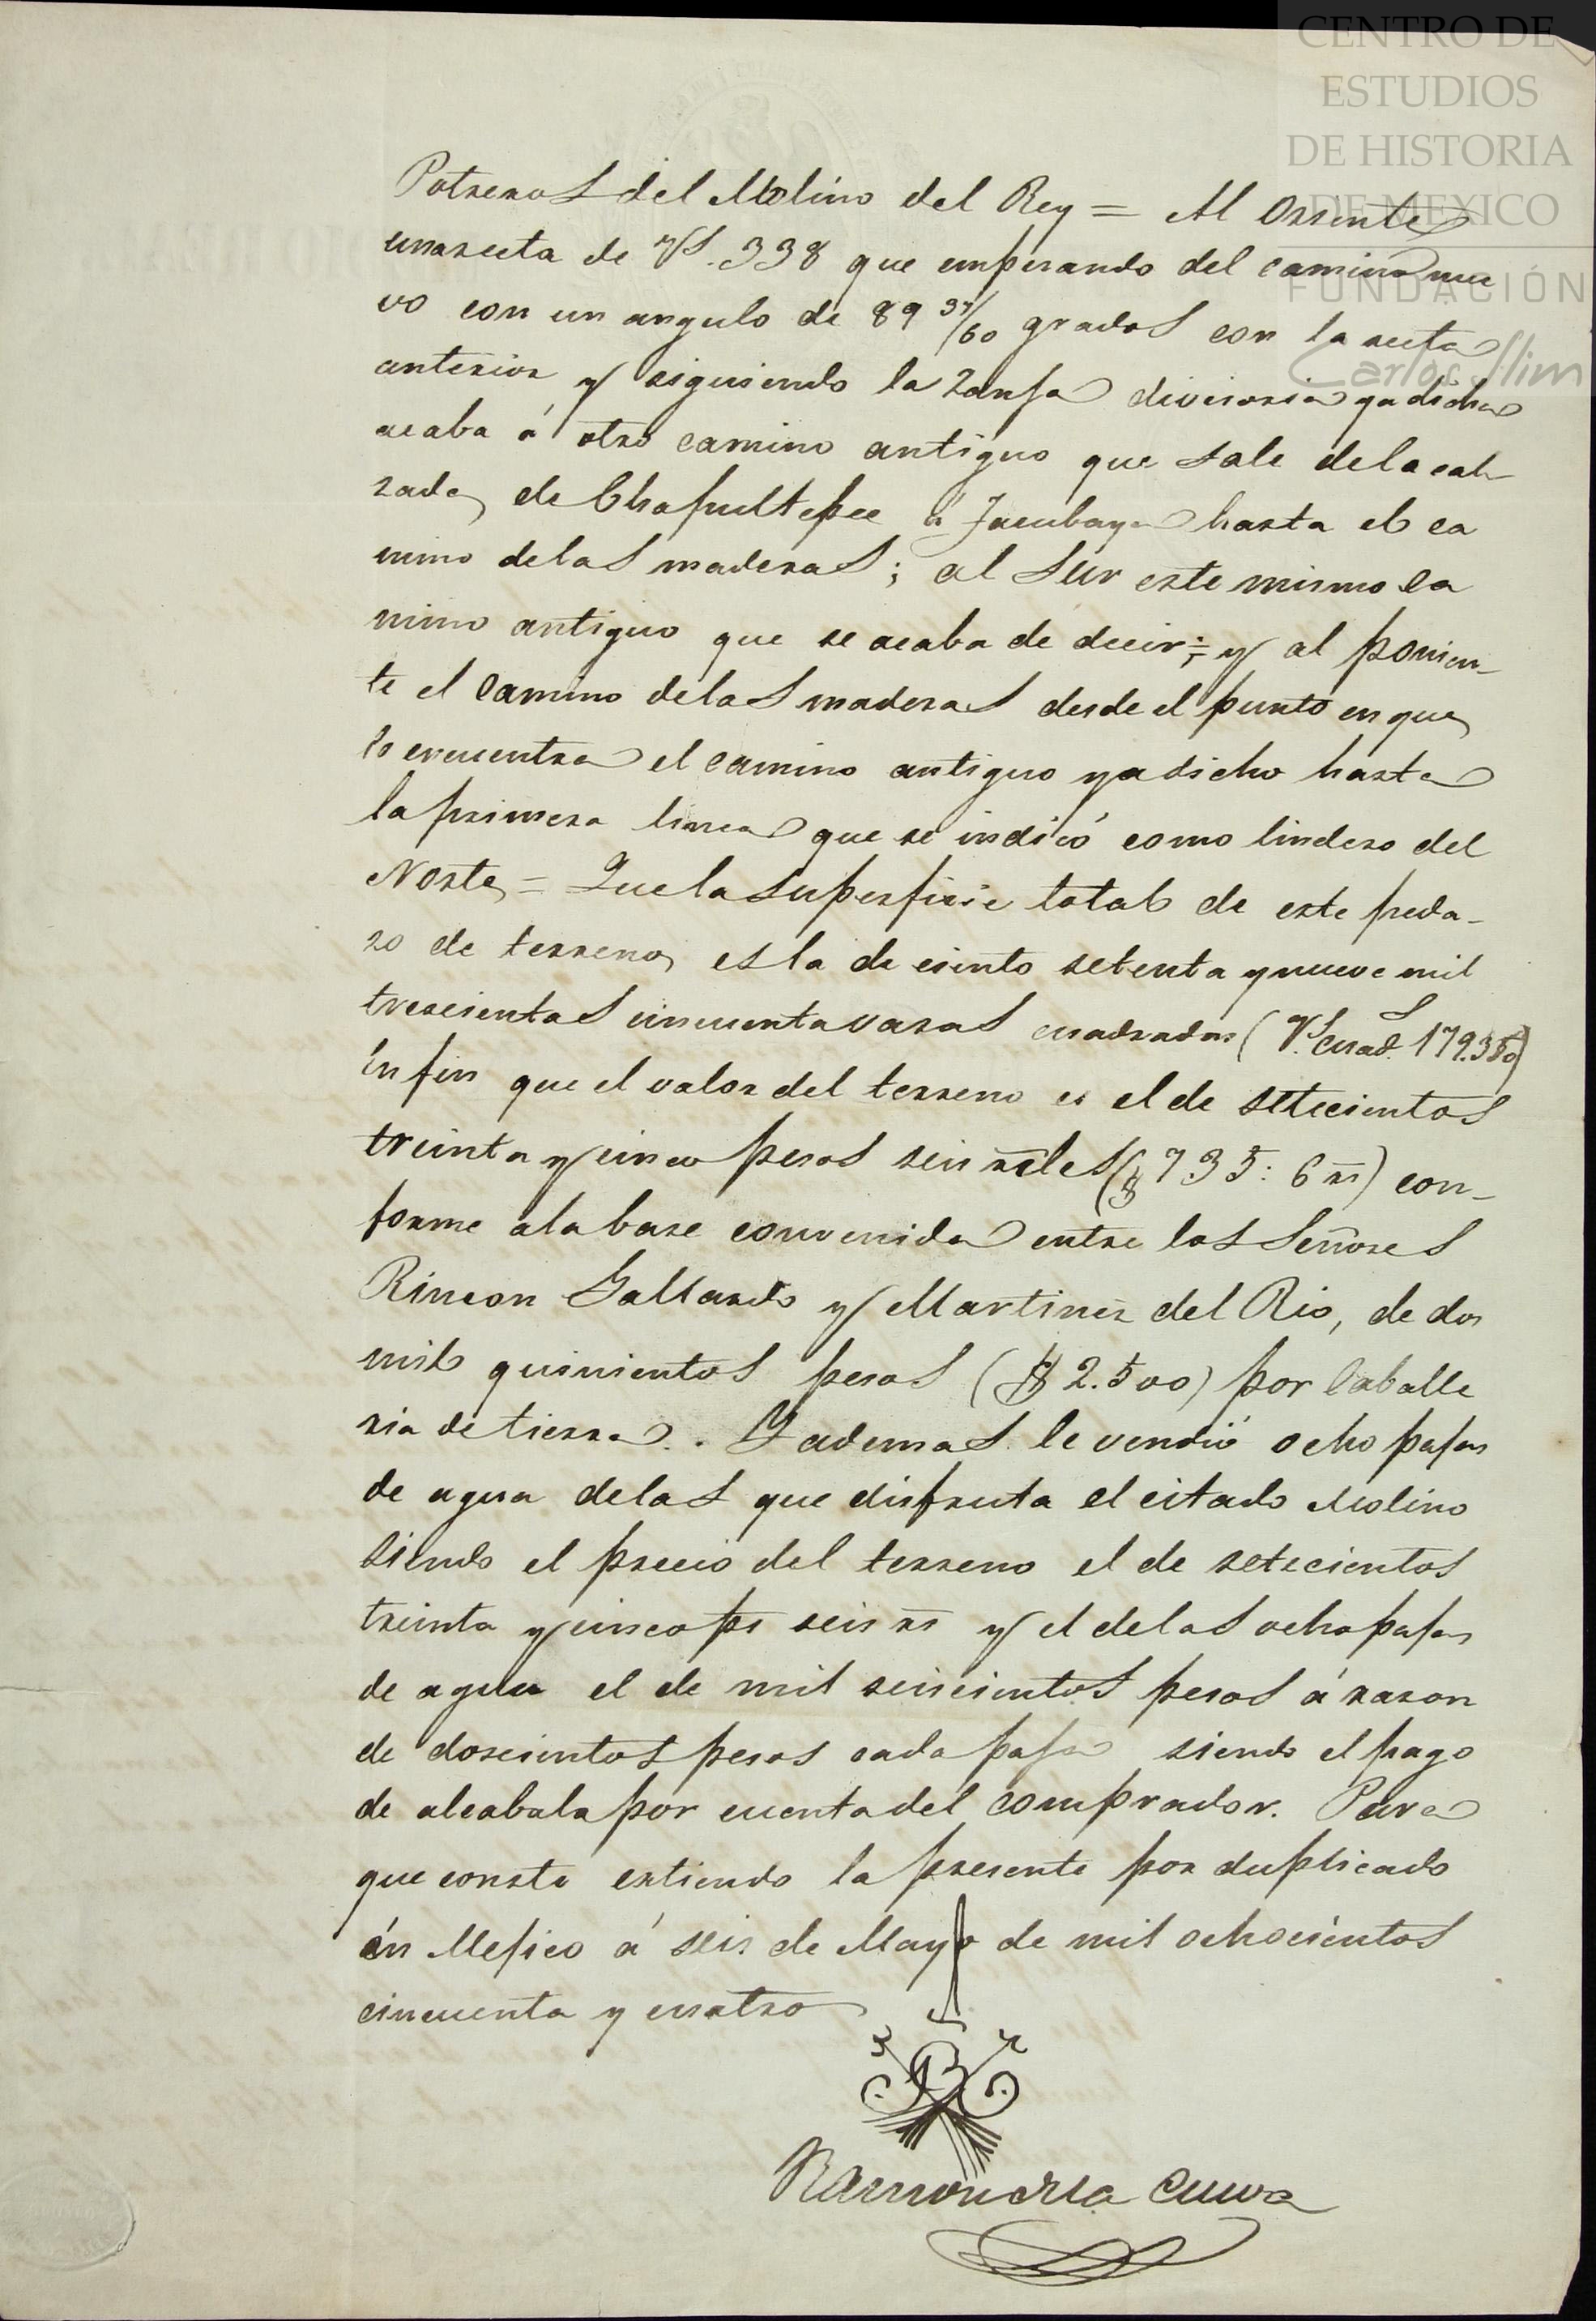 CENTRO DE
ESTUDIOS
DE HISTORIA
DE MEXICO
FUNDACIÓN
Carlos Slim
Potreros del Molino del Rey = Al Oriente
una recta de Vs. 338 que empesando del camino nue
vo con un angulo de 89 37/60 grados con la recta
anterior y siguiendo la zanja divisoria ya dicha
acaba á otro camino antiguo que sale de la cal-
zada de Chapultepec á Tacubaya hasta el ca
mino de las maderas; al Sur este mismo ca
mino antiguo que se acaba de decir; y al ponien-
te el camino de las maderas desde el punto en que
lo encuentra el camino antiguo ya dicho hasta
la primera linea que se indicó como lindero del
Norte = Que la superficie total de este peda-
zo de terreno es la de ciento setenta y nueve mil
trescientas cincuenta varas cuadradas (Vs. cuads. 179.350)
En fin que el valor del terreno es el de setecientos
treinta y cinco pesos seis rales ($735: 6 rs) con-
forme a la base convenida entre los Señores
Rincon Gallardo y Martinez del Rio, de dos
mil quinientos pesos ($ 2.500) por Caballe
ria de tierra. Y ademas le vendió ocho pajas
de agua de las que disfruta el citado Molino
siendo el precio del terreno el de setecientos
treinta y cinco ps seis rs y el de las ocho pajas
de agua el de mil seiscientos pesos á razon
de doscientos pesos cada paja siendo el pago
de alcabala por cuenta del comprador. Para
que conste extiendo la presente por duplicado
en Mejico á seis de Mayo de mil ochocientos
cincuenta y cuatro
Ramon de la Cueva